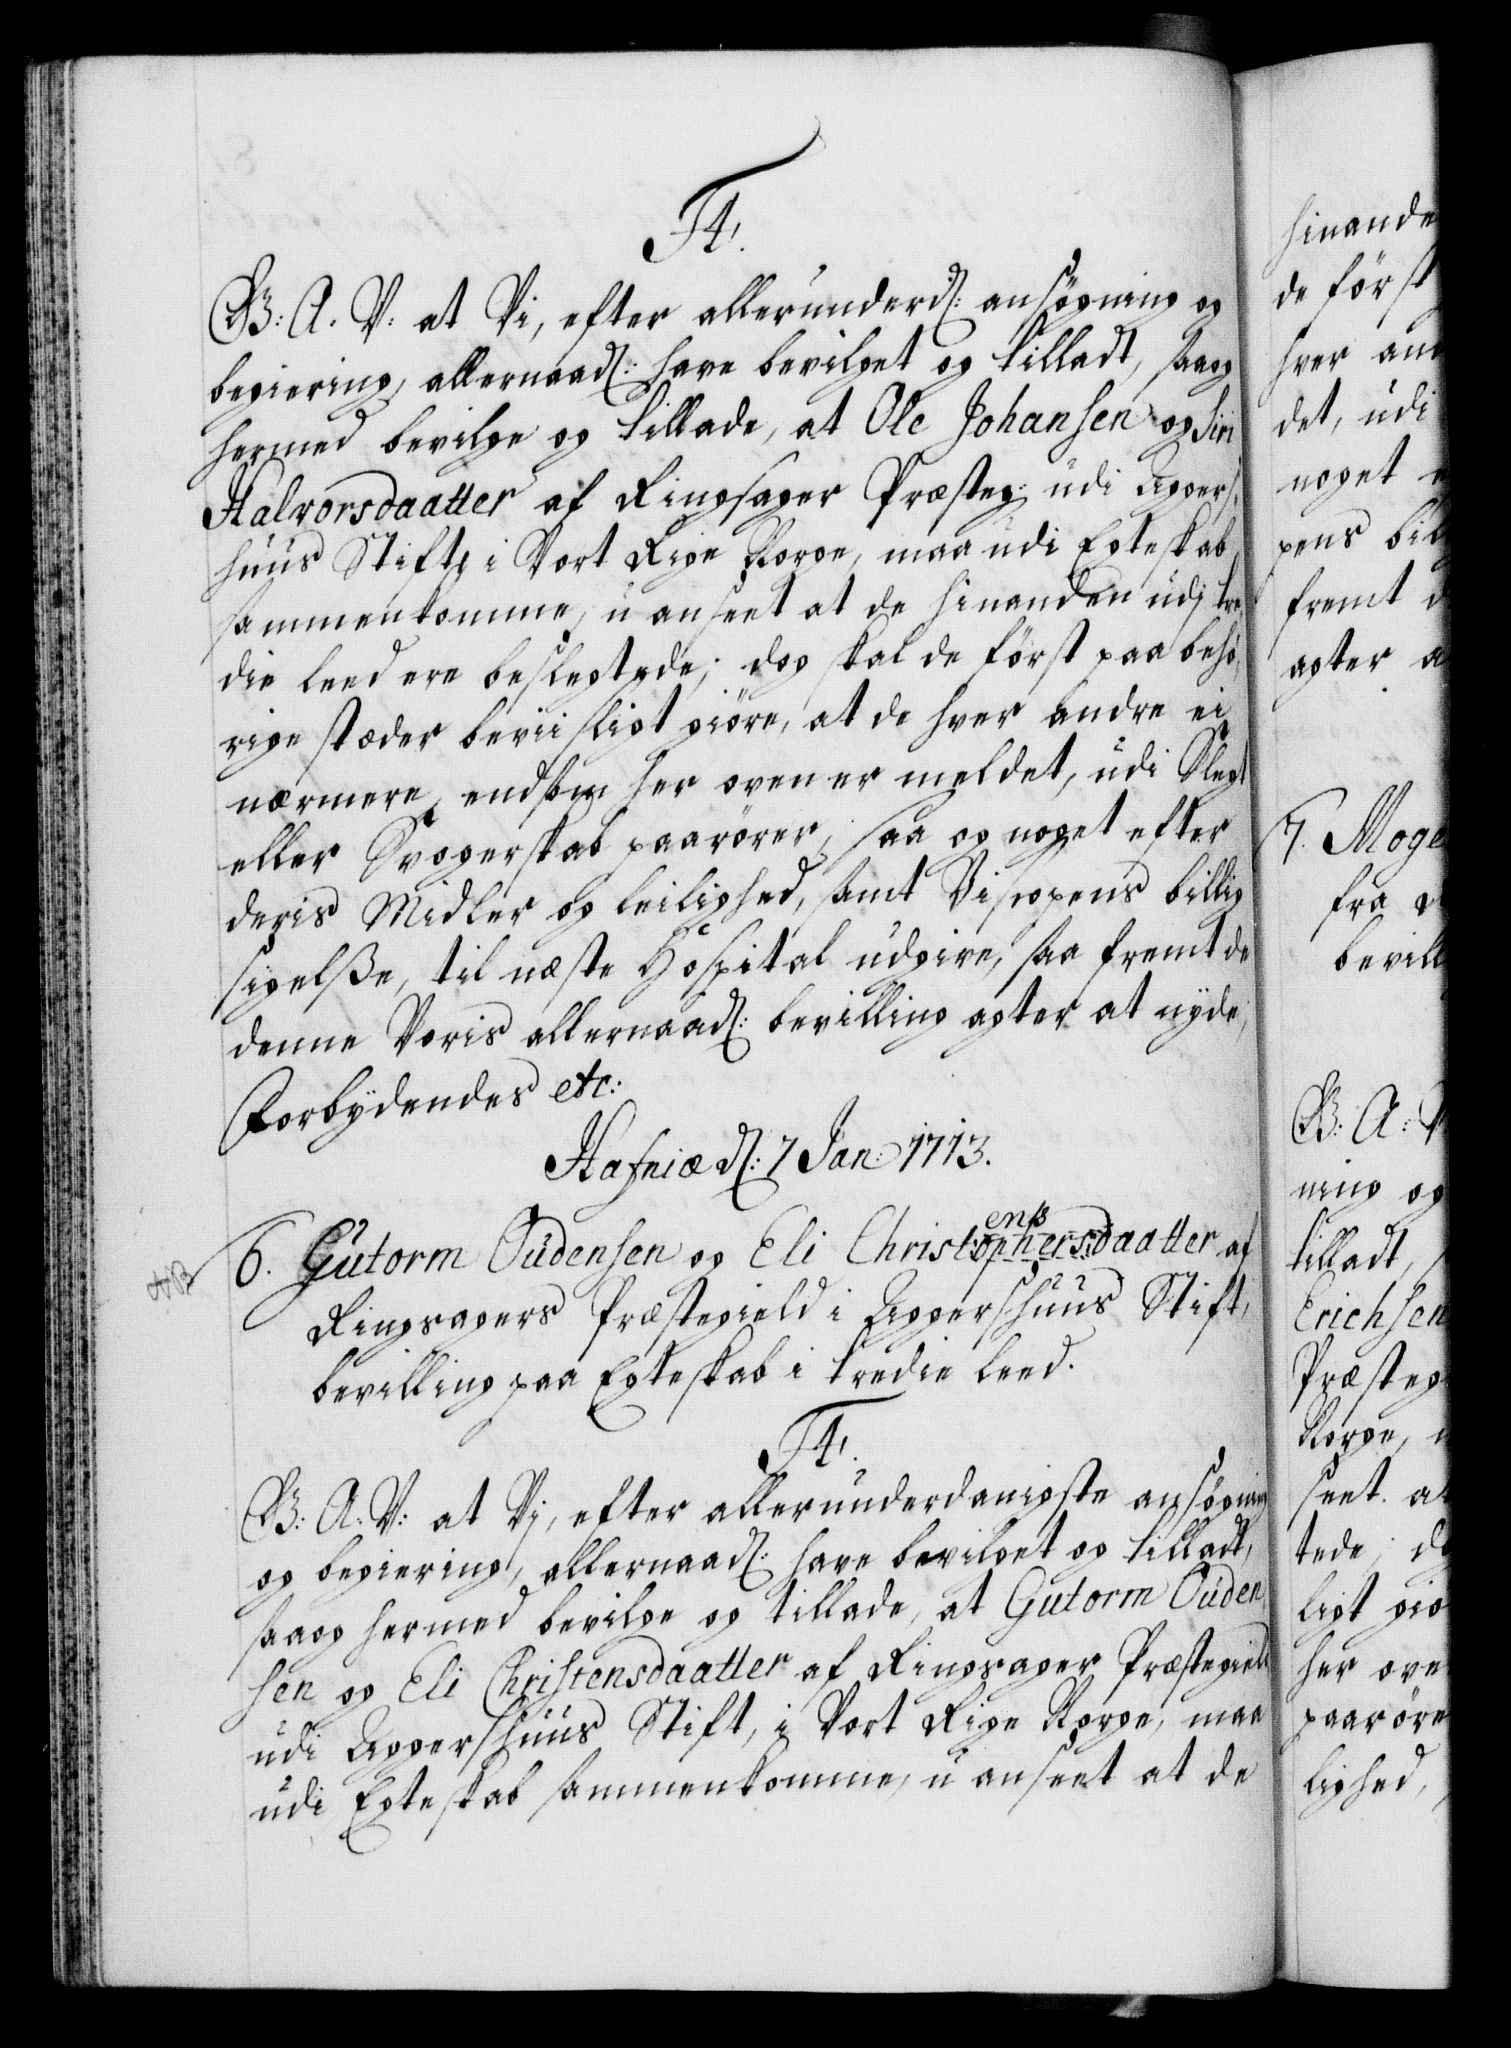 F4.
G: A. V: at Vi, efter allerunderd: ansögning og
begiering, allernaad: have bevilget og tilladt, saaog
hermed bevilge og tillade, at Ole Johansen og Siri
Halvorsdaatter af Ringsager Præsteg: udi Aggers-
huus Stift, i Vort Rige Norge, maa udi Egteskab
sammenkomme, uanseet at de hinanden udj tre-
die leed ere beslegtede; dog skal de först paa behö-
rige stæder beviisligt giöre, at de hver andre ei
nærmere, end som her oven er meldet, udi Slegt
eller Svogerskab paarörer, saa og noget efter
deris Midler og leilighed, samt Biscopens billig
sigelße, til næste Hospital udgive, saa fremt de
denne Voris allernaad: bevilling agter at nyde,
Forbydendes etc:
Hafniæ d: 7 Jan: 1713.
NB 6. Gutorm Oudensen og Eli Christophersdaatter af
ens
Ringsagers Præstegield i Aggershuus Stift,
bevilling paa Egteskab i tredie leed.
F4.
G: A: V: at Vj, efter allerunderdanigste ansögning
og begiering, allernaad: have bevilget og tilladt,
saaog hermed bevilge og tillade, at Gutorm Ouden
sen og Eli Christensdaatter af Ringsager Præstegield
udi Aggershuus Stift, i Vort Rige Norge, maa
udi Egteskab sammenkomme, uanseet at de
hinande
de först
hver an
det, udi
noget e
pens bil
fremt d
agter a
7. Moge
fra
bevill
G: A: V
ning og
tilladt,
Erichsen
Præsteg
Norge,
seet at
tede, do
ligt giö
her ove
paaröre
lighed,